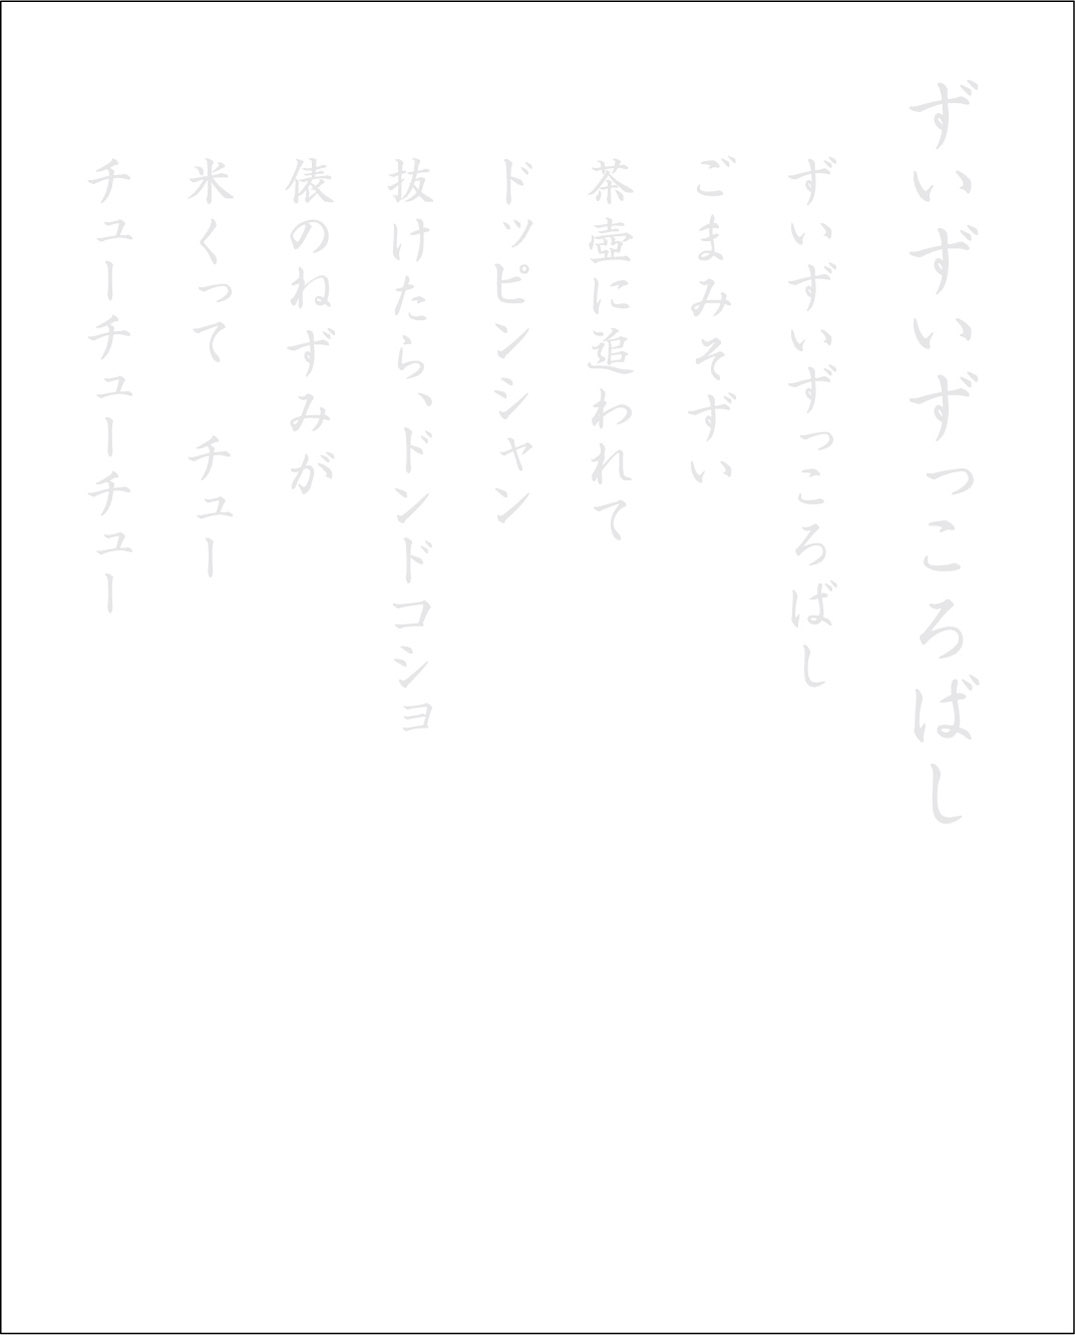 ずいずいずっころばし
ずいずいずっころばし
ごまみそずい
茶壺に追われて
ドッピンシャン
抜けたら、ドンドコショ
俵のねずみが
米くって　チュー
チューチューチュー